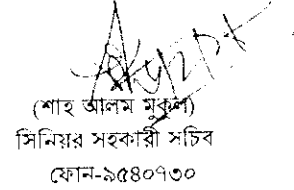 (শাহ আলম মুকুল)
সিনিয়র সহকারী সচিব
ফোন-৯৫৪০৭৩০